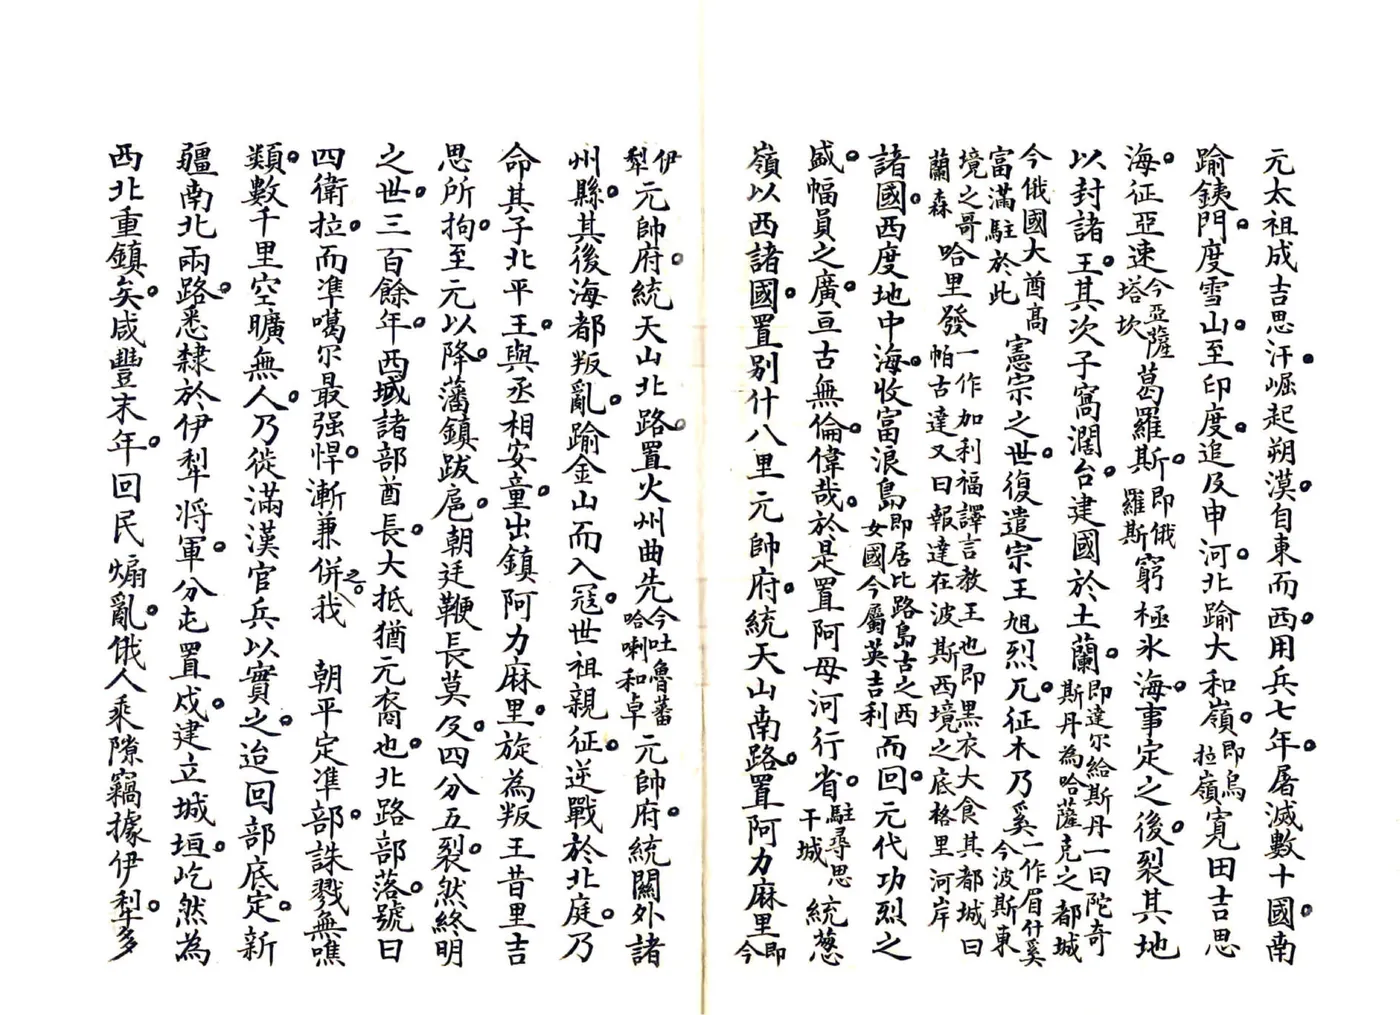 元太祖成吉思汗崛起朔漠。自東而西。用兵七年。屠滅數十國。南
踰鐵門。度雪山。至印度。追及申河。北踰大和嶺。即烏拉嶺寬田吉思
海。征亞速塔坎今亞薩葛羅斯。即俄羅斯窮極氷海。事定之後。裂其地
以封諸王。其次子窩濶台。建國於土蘭。即達尔給斯丹一曰陀奇斯丹為哈薩克之都城
今俄國大酋高富滿駐於此憲宗之世。復遣宗王旭烈兀。征木乃奚。一作眉什奚今波斯東
境之哥蘭森哈里發一作加利福譯言教王也即黑衣大食其都城曰帕古達又曰報達在波斯西境之底格里河岸
諸國。西度地中海。收富浪島。即居比路島古之西女國今屬英吉利而回。元代功烈之
盛。幅員之廣。亘古無倫。偉哉。於是置阿母河行省。駐尋思干城統葱
嶺以西諸國。置別什八里元帥府。統天山南路。置阿力麻里即今
伊犁元帥府。統天山北路。置火州曲先今吐魯蕃哈喇和卓元帥府。統關外諸
州縣。其後海都叛亂。踰金山而入寇。世祖親征。逆戰於北庭。乃
命其子北平王。與丞相安童。出鎮阿力麻里。旋為叛王昔里吉
思所拘。至元以降。藩鎮跋扈。朝廷鞭長莫及。四分五裂。然終明
之世。三百餘年。西域諸部酋長。大抵猶元裔也。北路部落。號曰
四衛拉。而準噶尔最强悍。漸兼併之。我 朝平定準部。誅戮無噍
類。數千里空曠無人。乃徙滿漢官兵以實之。迨回部底定。新
疆南北兩路。悉隸於伊犁將軍。分屯置戍。建立城垣。屹然為
西北重鎮矣。咸豐末年。回民煽亂。俄人乘隙竊據伊犁。多